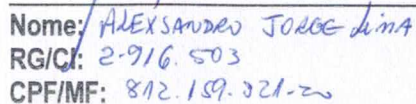 Nome: ALEXSANDRO JORGE LIMA
RG/CI: 2-916.503
CPF/MF: 812.159.021-20